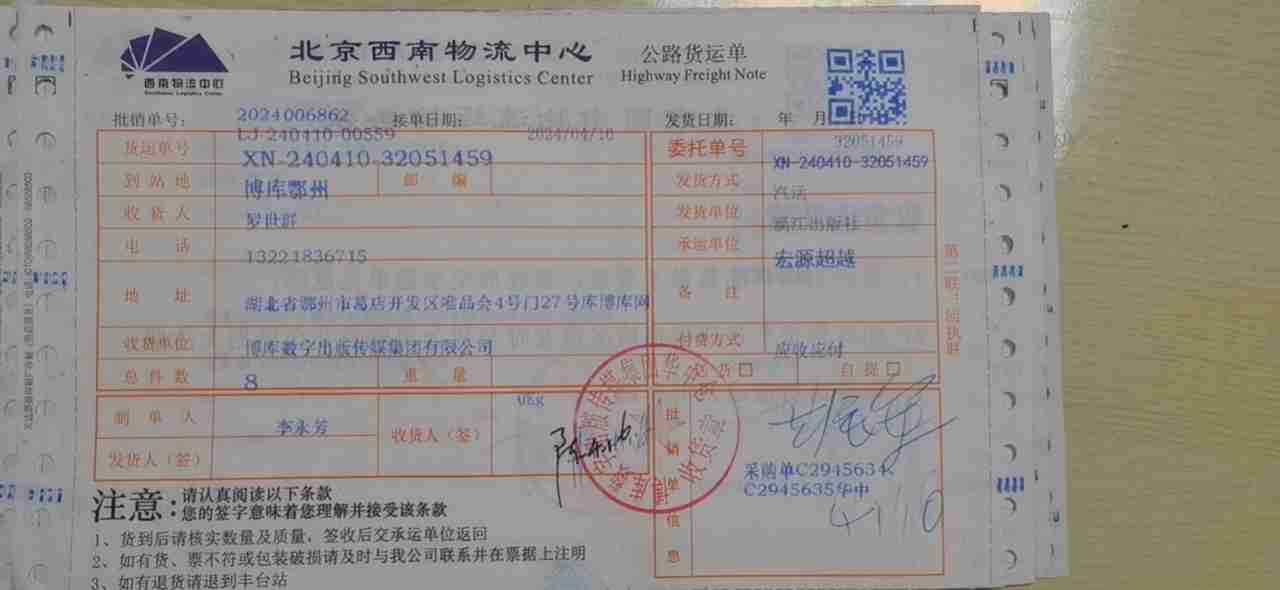 北京西南物流中心
公路货运单
Beijing Southwest Logistics Center
Highway Freight Note
西南物流中心
Southwest Logistics Center
批销单号: 2024006862 接单日期: 2024/04/10 发货日期: 年 月
LJ-240410-00559
32051459
货运单号 XN-240410-32051459 委托单号 XN-240410-32051459
到站地 博库鄂州 邮编 发货方式 汽运
收货人 罗世群 发货单位 漓江出版社
电话 13221836715 承运单位 宏源超越
地址 湖北省鄂州市葛店开发区唯品会4号门27号库博库网 备注
收货单位 博库数字出版传媒集团有限公司 付费方式 应收应付
总件数 8 重量 0kg 送货□ 自提□
制单人 李永芳 收货人(签)
发货人(签)
批销单信息
采购单C2945634、
C2945635华中
4.10
第二联:回执联
注意:
请认真阅读以下条款
您的签字意味着您理解并接受该条款
1、货到后请核实数量及质量，签收后交承运单位返回
2、如有货、票不符或包装破损请及时与我公司联系并在票据上注明
3、如有退货请退到丰台站